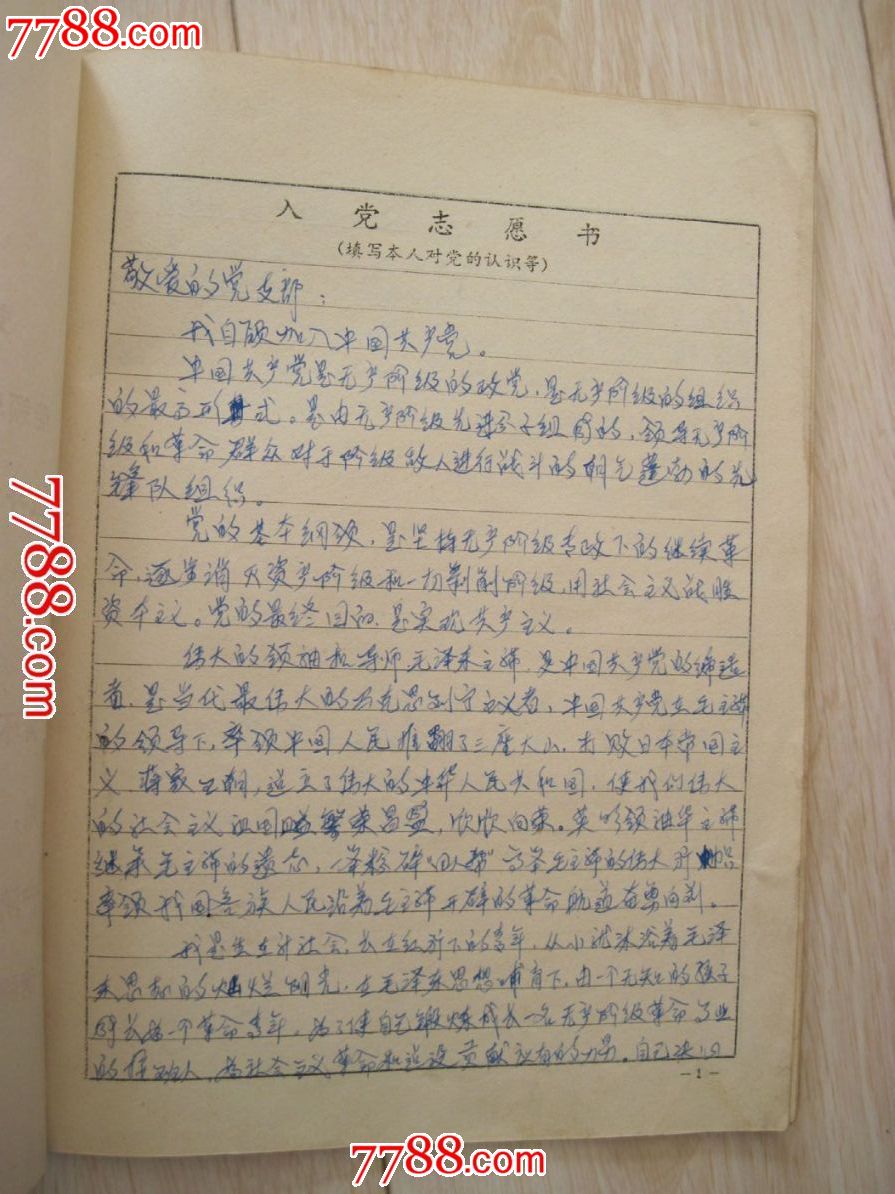 7788.com
7788.com
入党志愿书
(填写本人对党的认识等)
敬爱的党支部:
我自愿加入中国共产党。
中国共产党是无产阶级的政党,是无产阶级的组织
的最高形式。是由无产阶级先进分子组成的,领导无产阶
级和革命群众对于阶级敌人进行战斗的朝气蓬勃的先
锋队组织。
党的基本纲领,是坚持无产阶级专政下的继续革
命,逐步消灭资产阶级和一切剥削阶级,用社会主义战胜
资本主义。党的最终目的,是实现共产主义。
伟大的领袖和导师毛泽东主席,是中国共产党的缔造
者,是当代最伟大的马克思列宁主义者,中国共产党在毛主席
的领导下,率领中国人民推翻了三座大山,打败日本帝国主
义,蒋家王朝,建立了伟大的中华人民共和国,使我们伟大
的社会主义祖国繁荣昌盛,欣欣向荣。英明领袖华主席
继承毛主席的遗志,一举粉碎“四人帮”高举毛主席的伟大旗帜
率领我国各族人民沿着毛主席开辟的革命航道奋勇向前。
我是生在新社会,长在红旗下的青年,从小就沐浴着毛泽
东思想的灿烂阳光,在毛泽东思想哺育下,由一个无知的孩子
成长为一个革命青年。为了使自己锻炼成长一名无产阶级革命事业
的接班人,为社会主义革命和建设贡献应有的力量。自己决心
-1-
7788.com
7788.com
7788.com